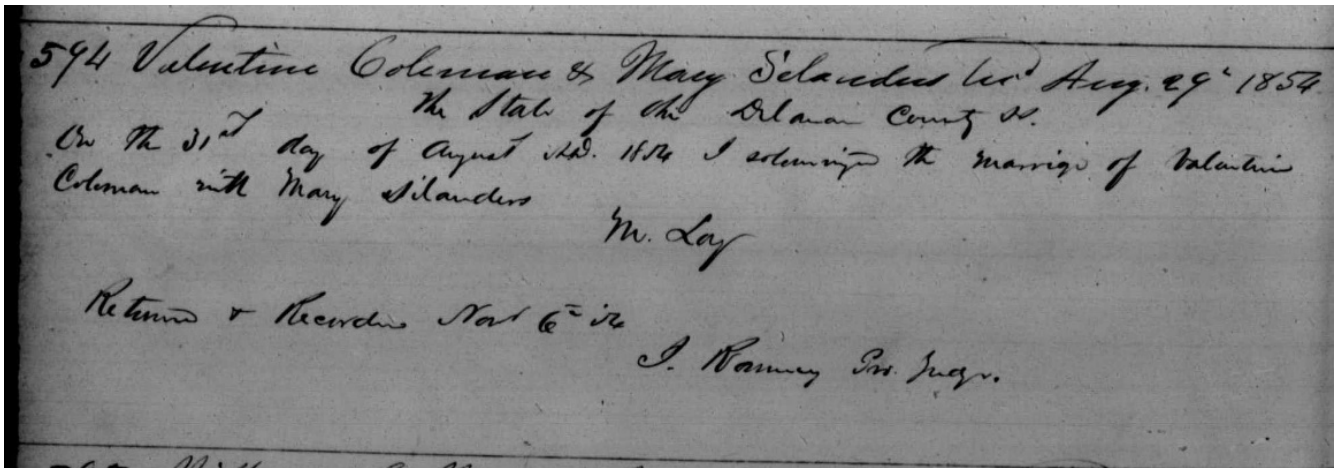 594 Valentine Coleman & Mary Silanders Lisd Aug. 29" 1854
The State of Ohio Delaware County SS.
On the 31st day of August A.D. 1854 I solemnized the marriage of Valentine
Coleman with Mary Silanders
M. Loy
Returned & Recorded Nov 6th 54
J. Ranney Pro. Judge.